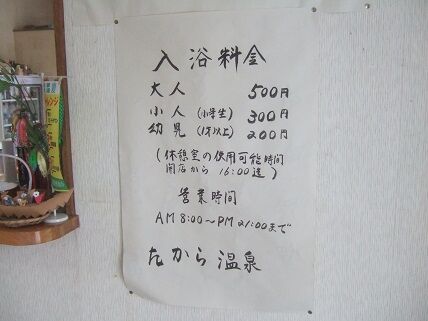 入浴料金
大人 500円
小人(小学生) 300円
幼児(1才以上) 200円
(休憩室の使用可能時間
開店から 16:00迄)
営業時間
AM 8:00〜PM 21:00まで
たから温泉